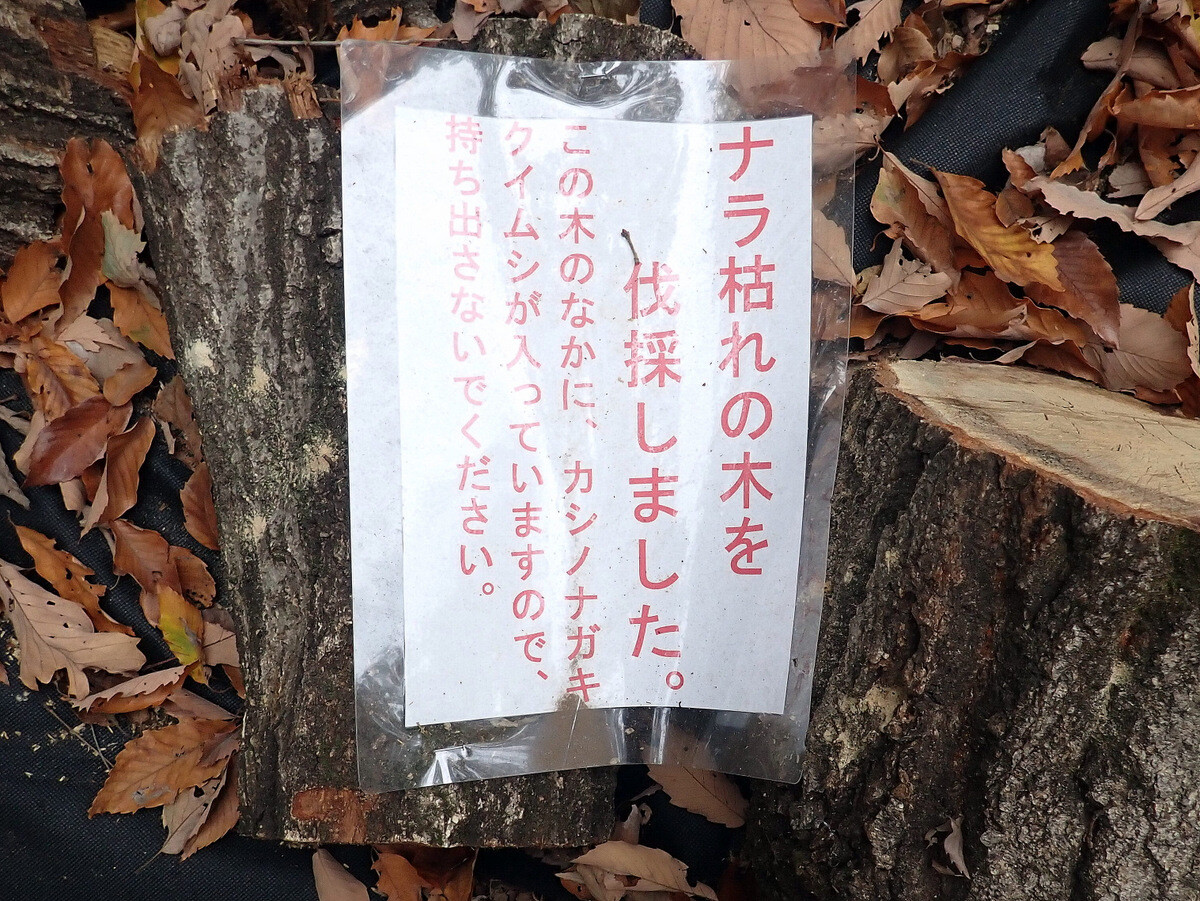 ナラ枯れの木を
伐採しました。
この木のなかに、カシノナガキ
クイムシが入っていますので、
持ち出さないでください。